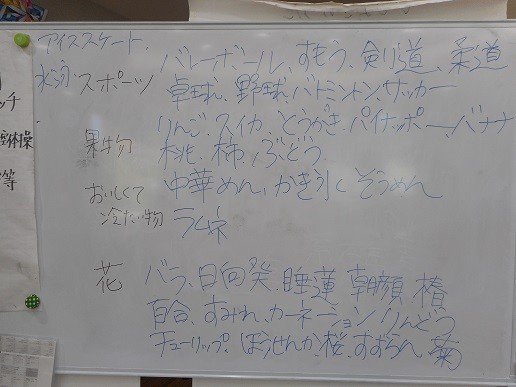 アイススケート、
水泳 スポーツ バレーボール、すもう、剣道、柔道
卓球、野球、バトミントン、サッカー
果物 りんご、スイカ、とうがき、パイナッポー、バナナ
桃、柿、ぶどう
おいしくて 中華めん、かき氷 そうめん
冷たい物 ラムネ
花 バラ、日向葵、睡蓮 朝顔 椿
百合、すみれ、カーネーション りんどう
チューリップ、ほうせんか、桜、すずらん 菊
ッチ
体操
等